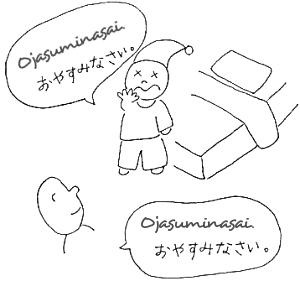 Ojasuminasai.
おやすみなさい。
Ojasuminasai.
おやすみなさい。